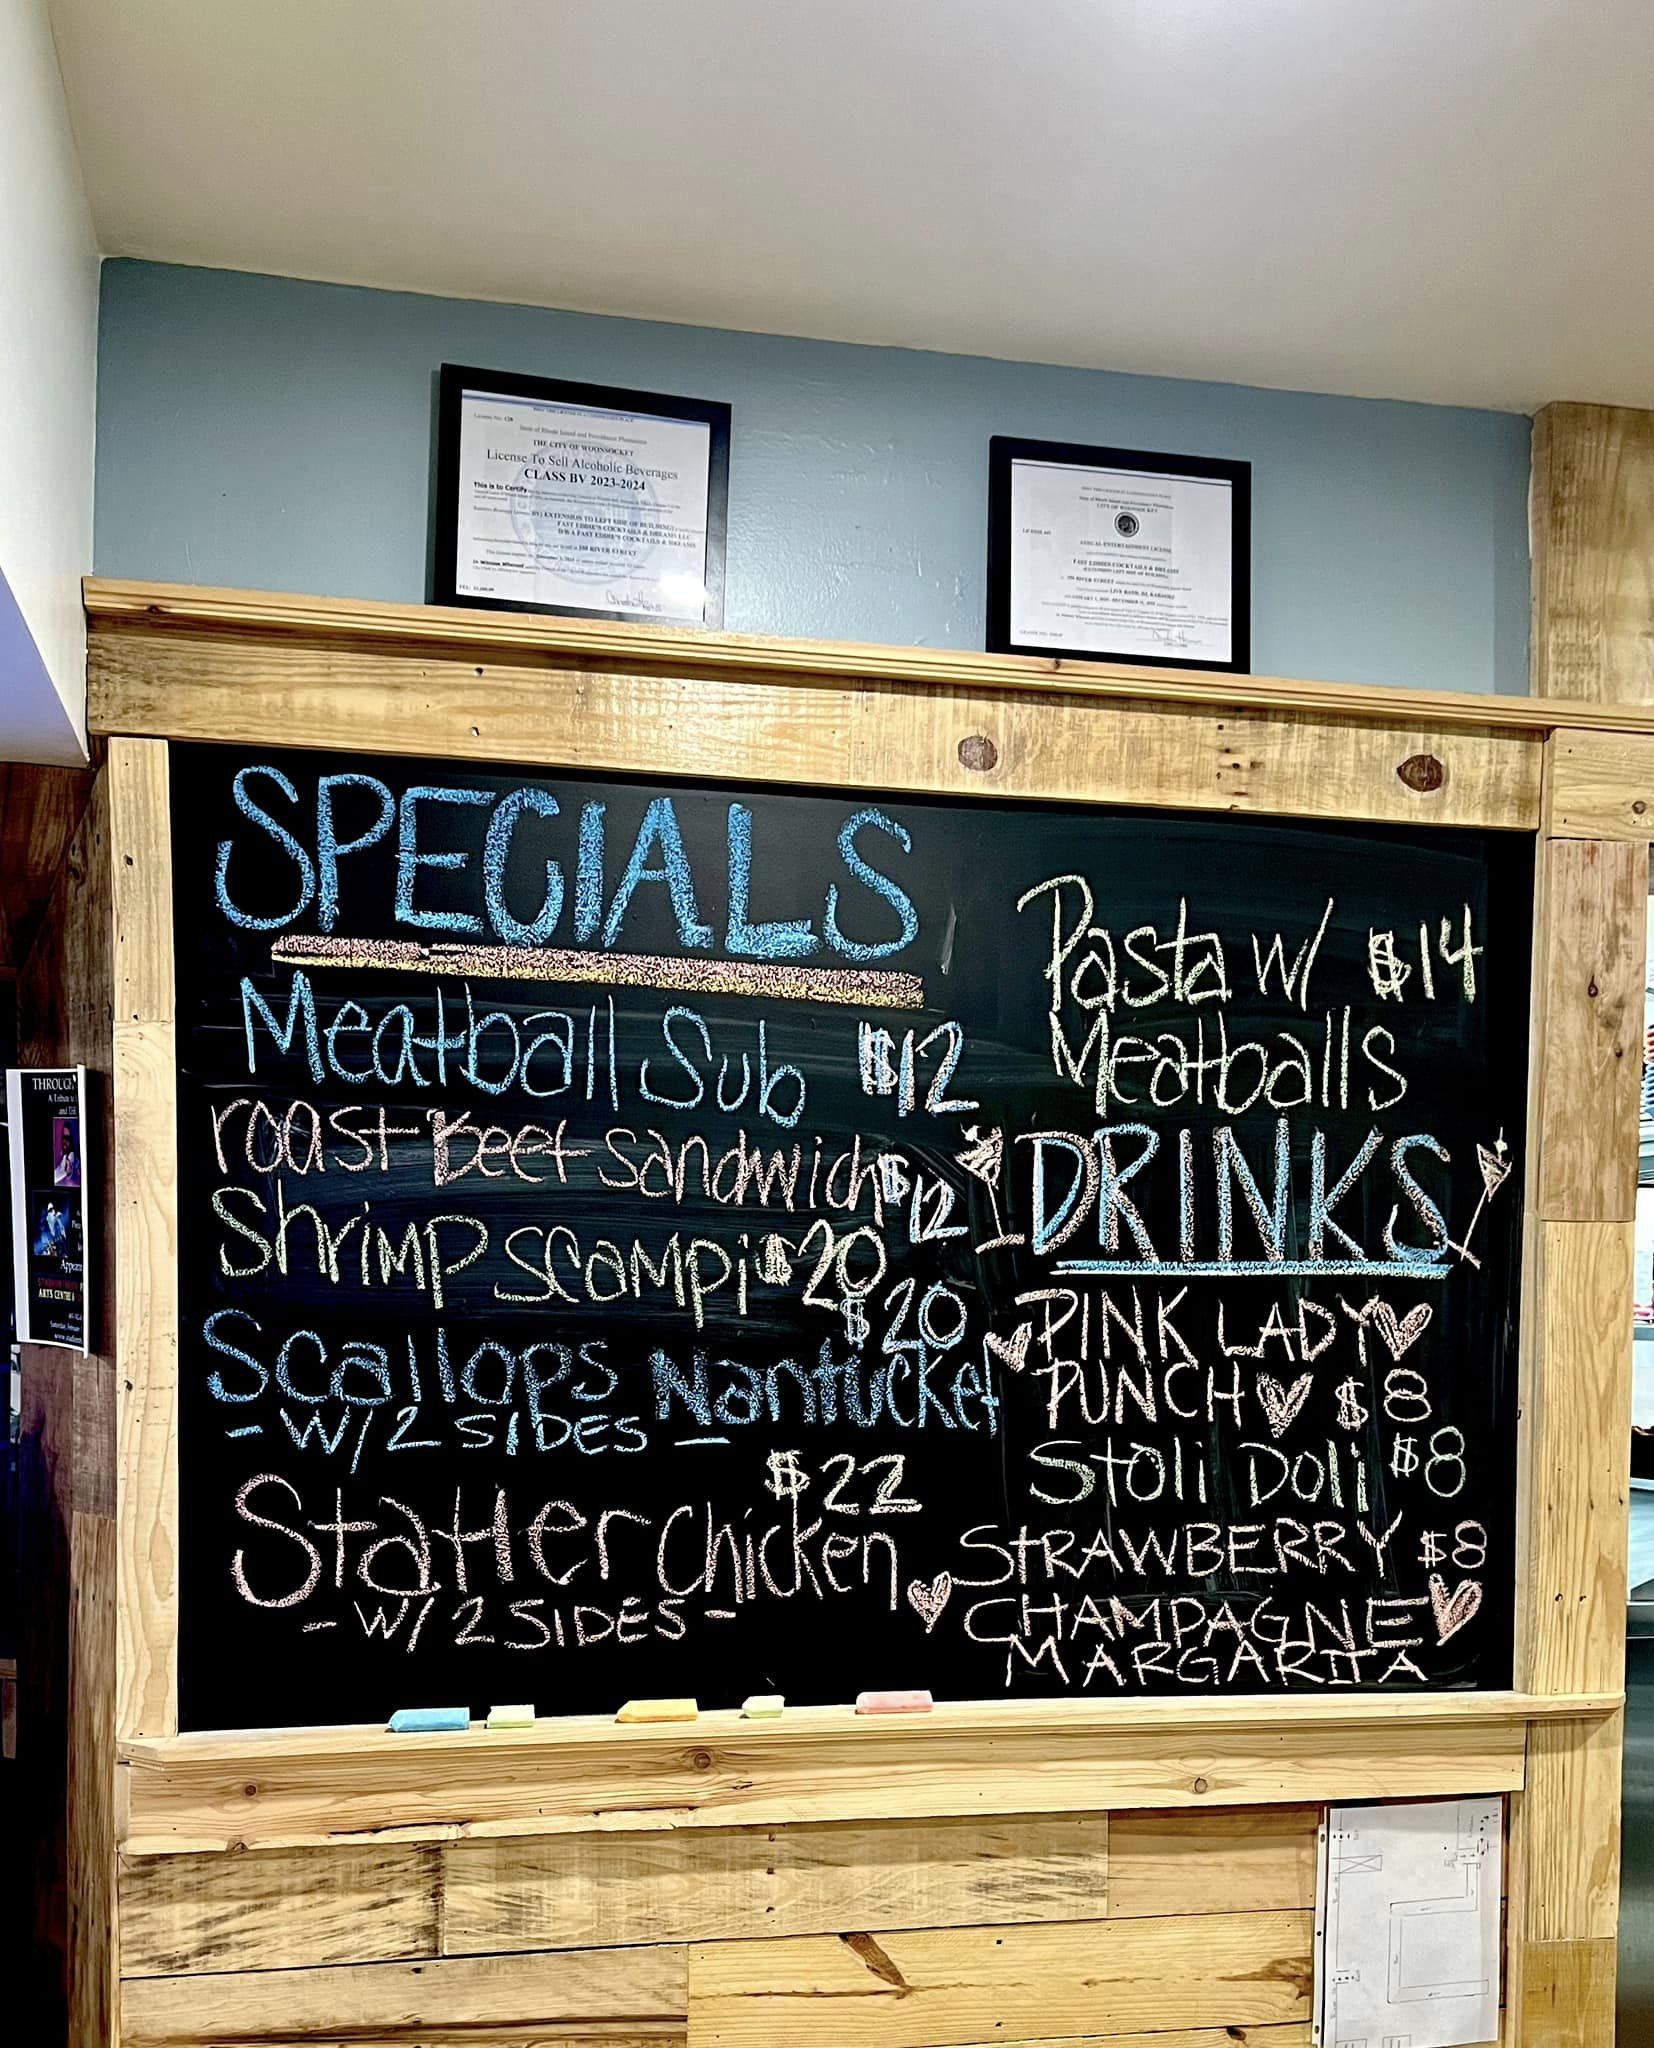 License No. 128
State of Rhode Island and Providence Plantations
THE CITY OF WOONSOCKET
License To Sell Alcoholic Beverages
CLASS BV 2023-2024
This is to Certify
BV( EXTENSION TO LEFT SIDE OF BUILDING)
FAST EDDIE'S COCKTAILS & DREAMS LLC
D/B/A FAST EDDIE'S COCKTAILS & DREAMS
RIVER STREET
State of Rhode Island and Providence Plantations
CITY OF WOONSOCKET
ANNUAL ENTERTAINMENT LICENSE
FAST EDDIES COCKTAILS & DREAMS
(EXTENSION LEFT SIDE OF BUILDING)
RIVER STREET
LIVE BAND, DJ, KARAOKE
SPECIALS
Meatball Sub $12
roast Beef sandwich $12
Shrimp scampi $20
$20
Scallops Nantucket
- W/ 2 SIDES -
$22
Statler Chicken
- W/ 2 SIDES -
Pasta w/ $14
Meatballs
DRINKS
PINK LADY
PUNCH $8
Stoli Doli $8
STRAWBERRY $8
CHAMPAGNE
MARGARITA
THROUGH
A Tribute
ARTS CENTRE